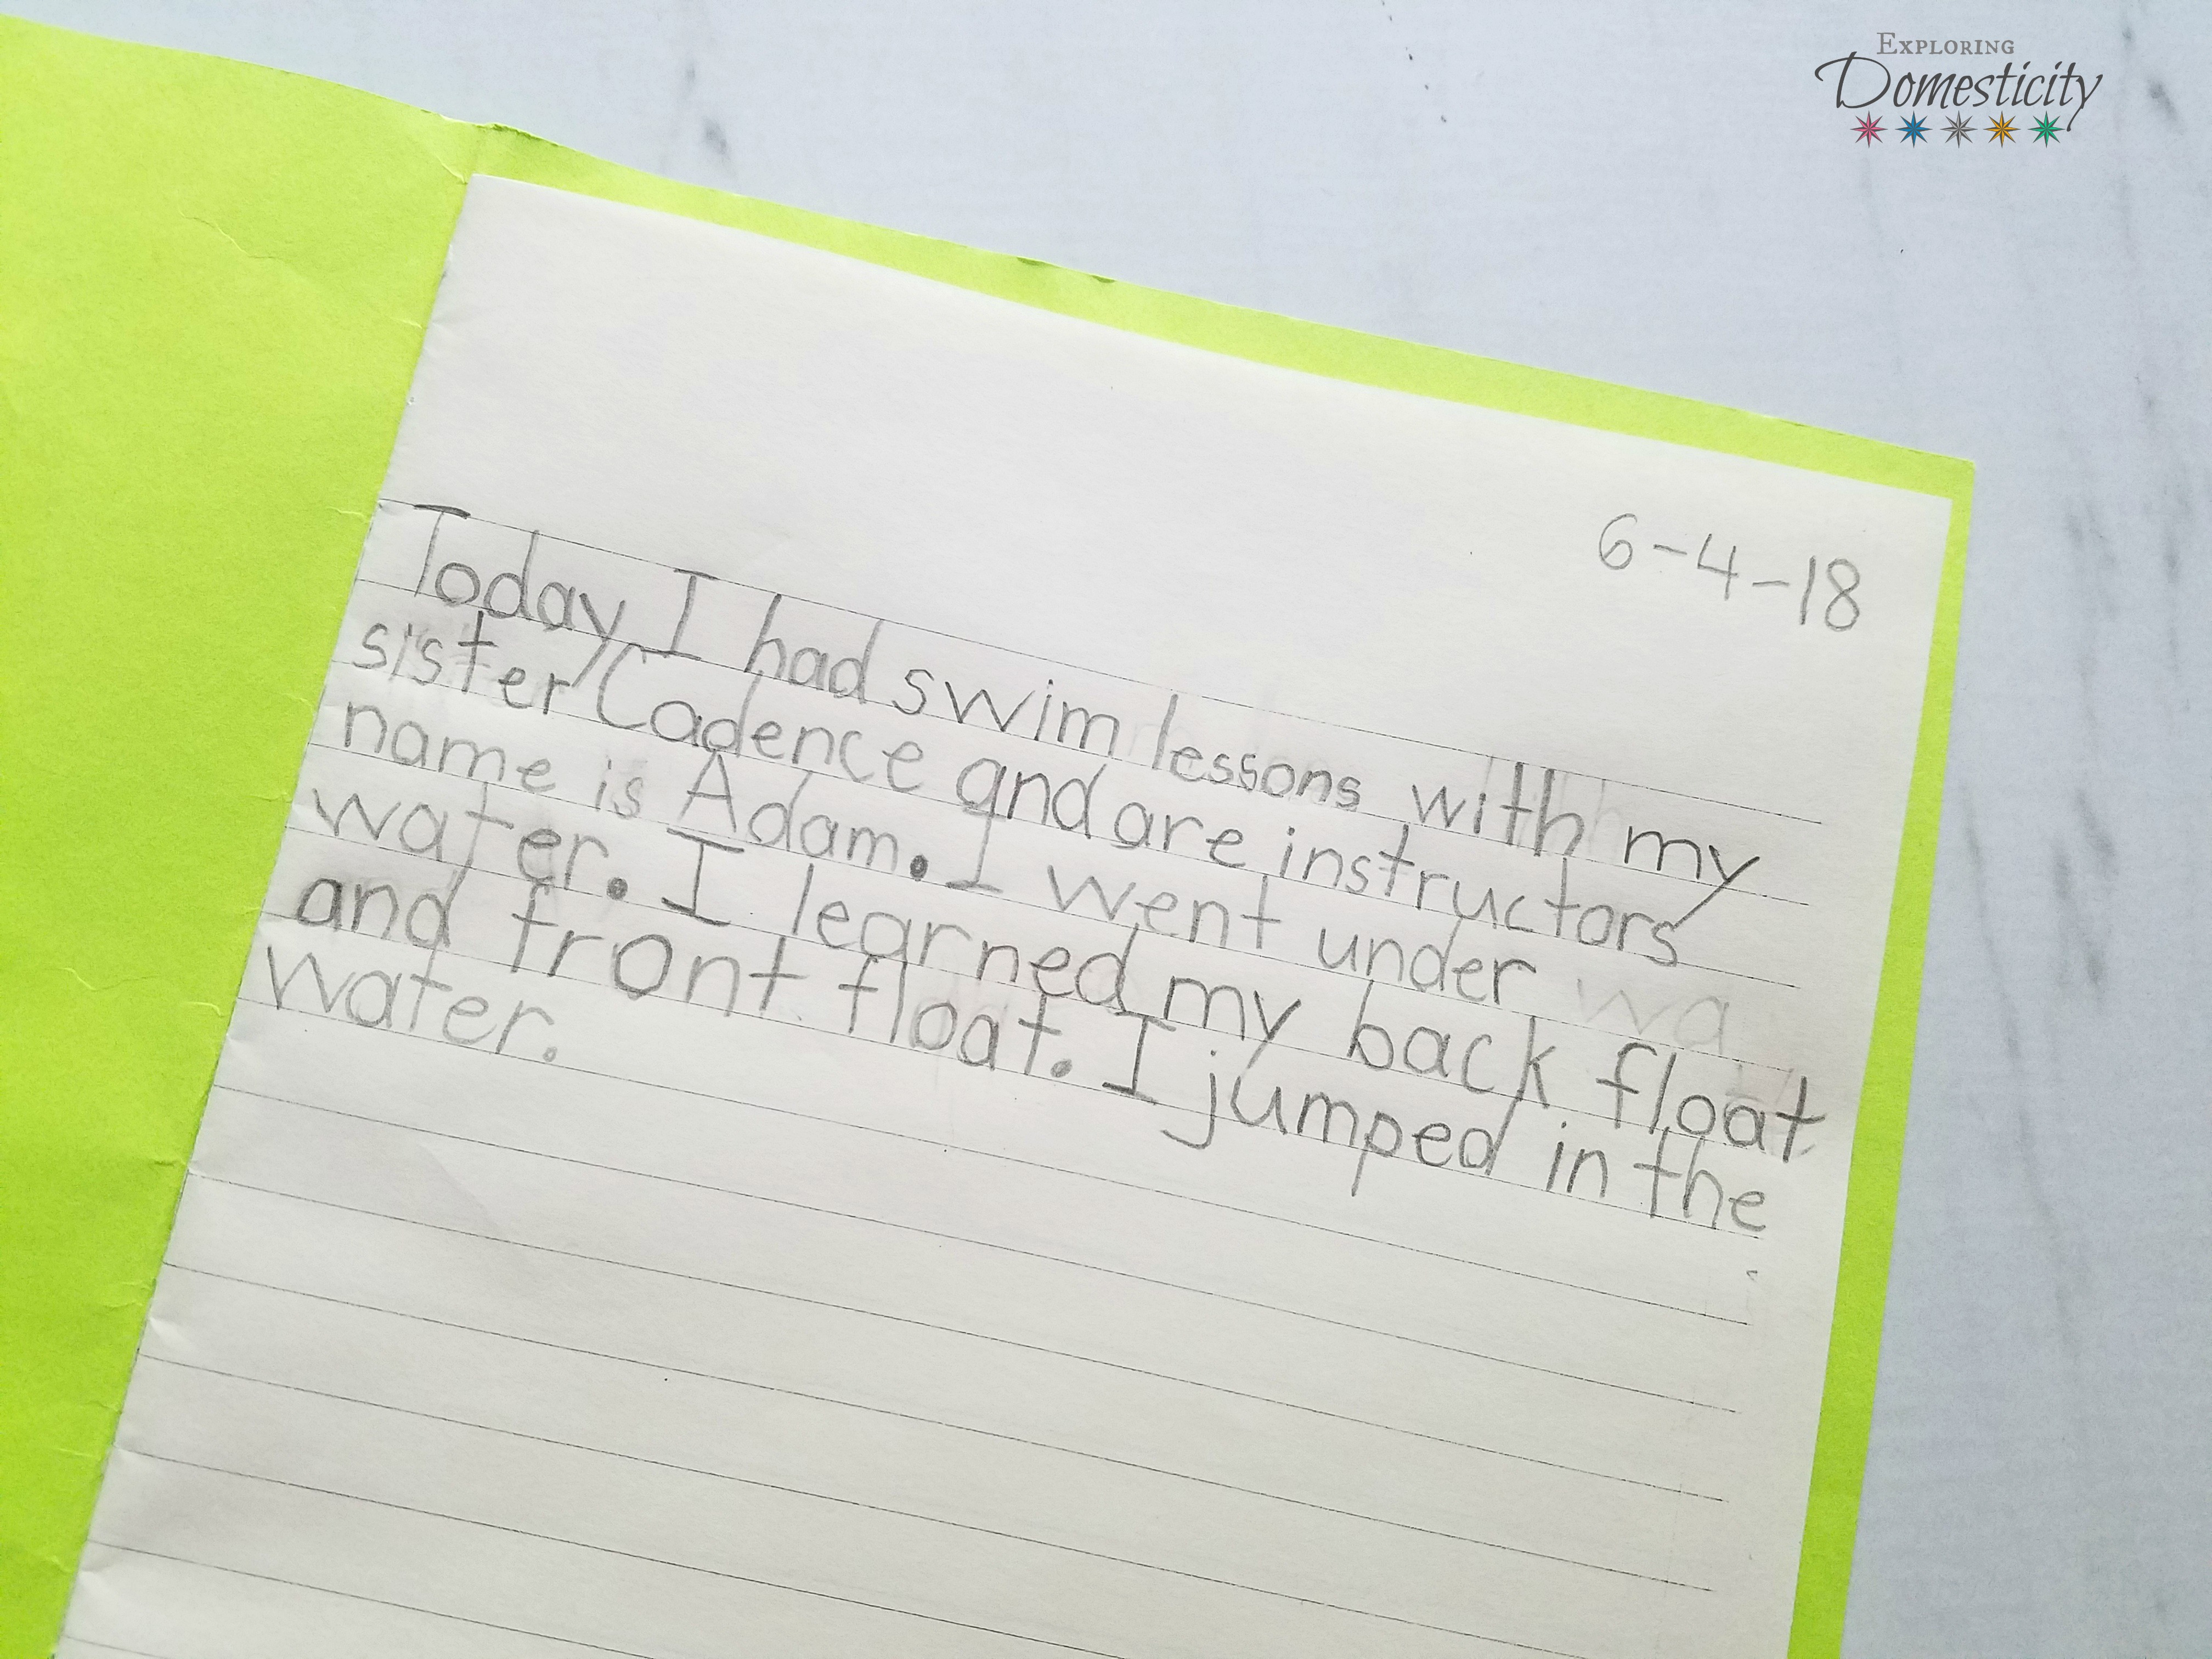 EXPLORING
Domesticity
6-4-18
Today I had swim lessons with my
sister Cadence and are instructors
name is Adam. I went under wa
water. I learned my back float
and front float. I jumped in the
water.